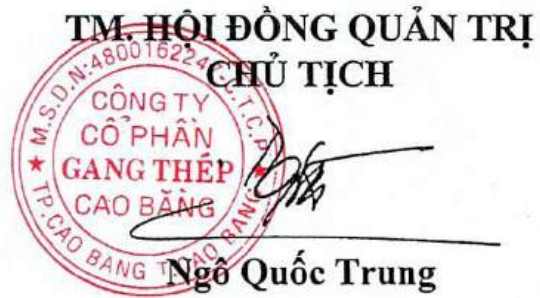 TM. HỘI ĐỒNG QUẢN TRỊ
CHỦ TỊCH
M.S.D.N:4800162247-C.T.C.P
CÔNG TY
CỔ PHẦN
GANG THÉP
CAO BẰNG
TP.CAO BẰNG T.CAO BẰNG
Ngô Quốc Trung